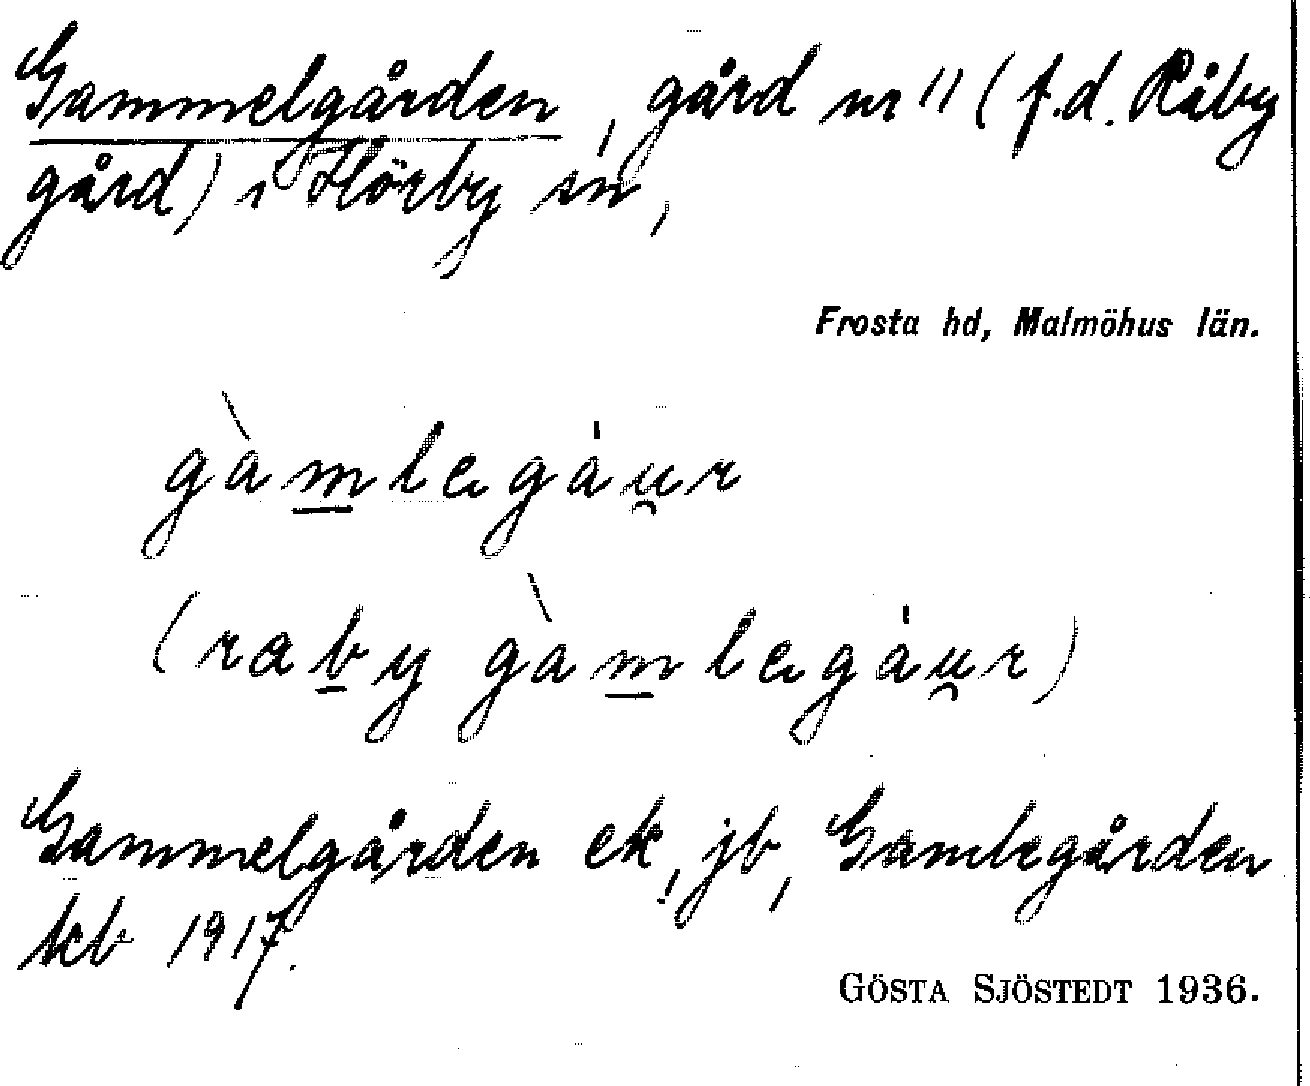 Gammelgården, gård nr 11 (f.d. Råby
gård) i Hörby sn,
Frosta hd, Malmöhus län.
gàmlegáu̯r
(raby gàmlegáu̯r)
Gammelgården ek, jb, Gamlegården
kb 1917.
GÖSTA SJÖSTEDT 1936.